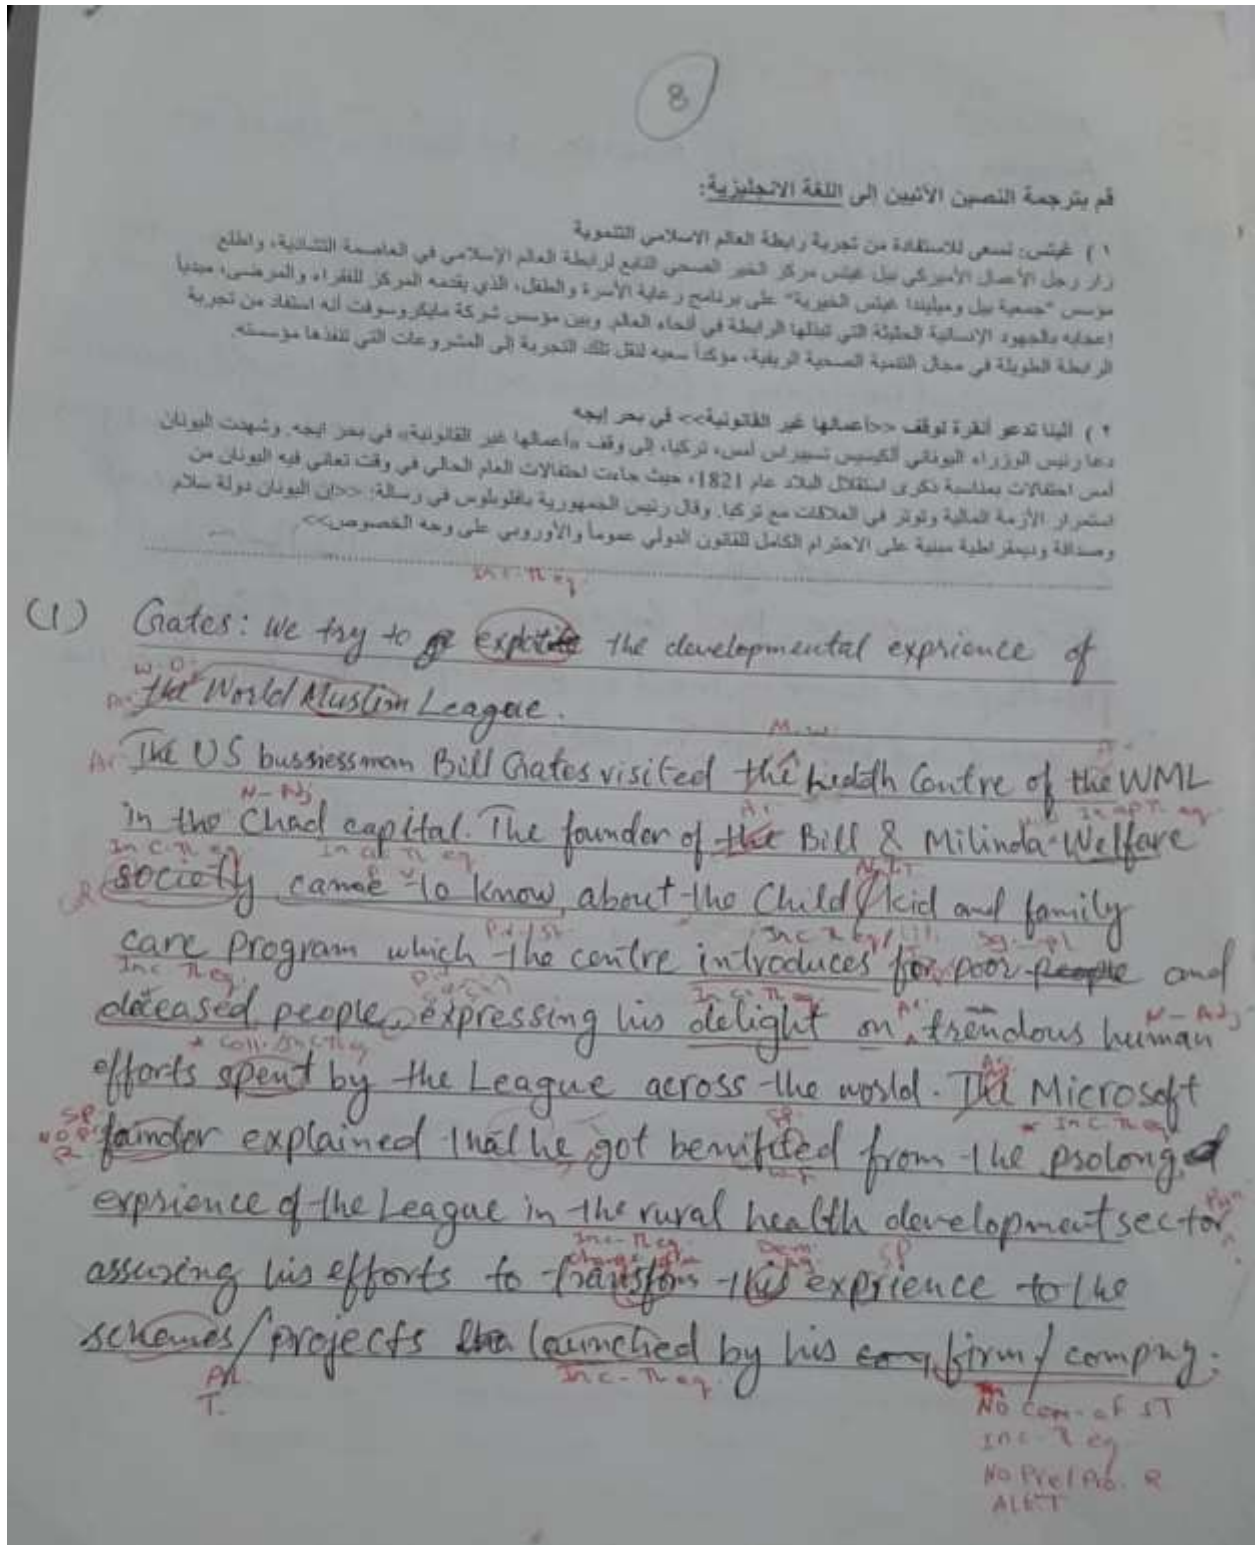 8
قم بترجمة النصين الآتيين إلى اللغة الانجليزية:
١) غيتس: نسعى للاستفادة من تجربة رابطة العالم الاسلامي التنموية
زار رجل الأعمال الأميركي بيل غيتس مركز الخير الصحي التابع لرابطة العالم الإسلامي في العاصمة التشادية، واطلع
مؤسس "جمعية بيل وميليندا غيتس الخيرية" على برنامج رعاية الأسرة والطفل، الذي يقدمه المركز للفقراء والمرضى، مبدياً
إعجابه بالجهود الإنسانية الحثيثة التي تبذلها الرابطة في أنحاء العالم. وبين مؤسس شركة مايكروسوفت أنه استفاد من تجربة
الرابطة الطويلة في مجال التنمية الصحية الريفية، مؤكداً سعيه لنقل تلك التجربة إلى المشروعات التي تنفذها مؤسسته.
٢) أثينا تدعو أنقرة لوقف <<أعمالها غير القانونية>> في بحر إيجه
دعا رئيس الوزراء اليوناني ألكيسيس تسيبراس أمس، تركيا، إلى وقف «أعمالها غير القانونية» في بحر ايجه. وشهدت اليونان
أمس احتفالات بمناسبة ذكرى استقلال البلاد عام 1821، حيث جاءت احتفالات العام الحالي في وقت تعاني فيه اليونان من
استمرار الأزمة المالية وتوتر في العلاقات مع تركيا. وقال رئيس الجمهورية بافلوبلوس في رسالة: <<إن اليونان دولة سلام
وصداقة وديمقراطية مبنية على الاحترام الكامل للقانون الدولي عموماً والأوروبي على وجه الخصوص>>
Inc-Th eq.
(1) Gates: We try to the developmental exprience of
W.O.
the World Muslim League.
M.W.
Ar The US bussnessman Bill Gates visited the health Centre of the WML
N-Adj Ar
in the Chad capital. The founder of the Bill & Milinda Welfare
Inc Th eq
society came to know about the Child/kid and family
care program which the centre introduces for poor people and
Inc Th eq.
deceased people, expressing his delight on trendous human N-Adj
* Coll. Inc Th eq
efforts spent by the League across the world. The Microsoft
SP SP * Inc Th eq
founder explained that he got benifited from the prolonged
exprience of the League in the rural health development sector
Inc-Th eq. SP
assuring his efforts to this exprience to the
schemes/projects launched by his firm/compny.
T. Inc-Th eq.
No Com. of ST
Inc-Th eq
No Pre/Pro. R